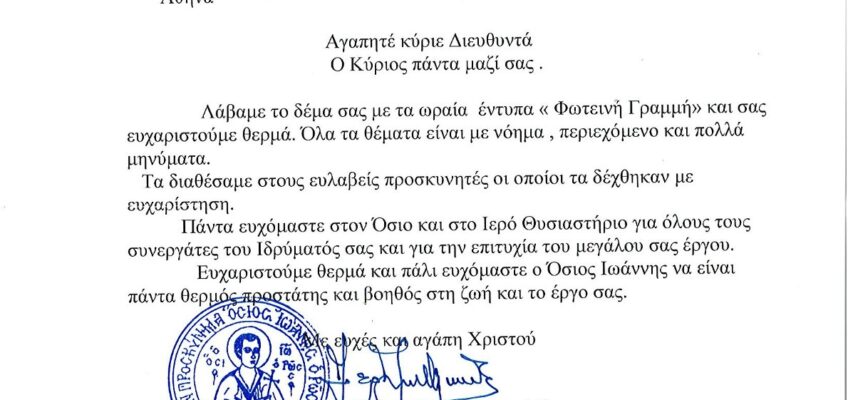 Αθήνα
Αγαπητέ κύριε Διευθυντά
Ο Κύριος πάντα μαζί σας .
Λάβαμε το δέμα σας με τα ωραία έντυπα « Φωτεινή Γραμμή» και σας
ευχαριστούμε θερμά. Όλα τα θέματα είναι με νόημα , περιεχόμενο και πολλά
μηνύματα.
Τα διαθέσαμε στους ευλαβείς προσκυνητές οι οποίοι τα δέχθηκαν με
ευχαρίστηση.
Πάντα ευχόμαστε στον Όσιο και στο Ιερό Θυσιαστήριο για όλους τους
συνεργάτες του Ιδρύματός σας και για την επιτυχία του μεγάλου σας έργου.
Ευχαριστούμε θερμά και πάλι ευχόμαστε ο Όσιος Ιωάννης να είναι
πάντα θερμός προστάτης και βοηθός στη ζωή και το έργο σας.
Με ευχές και αγάπη Χριστού